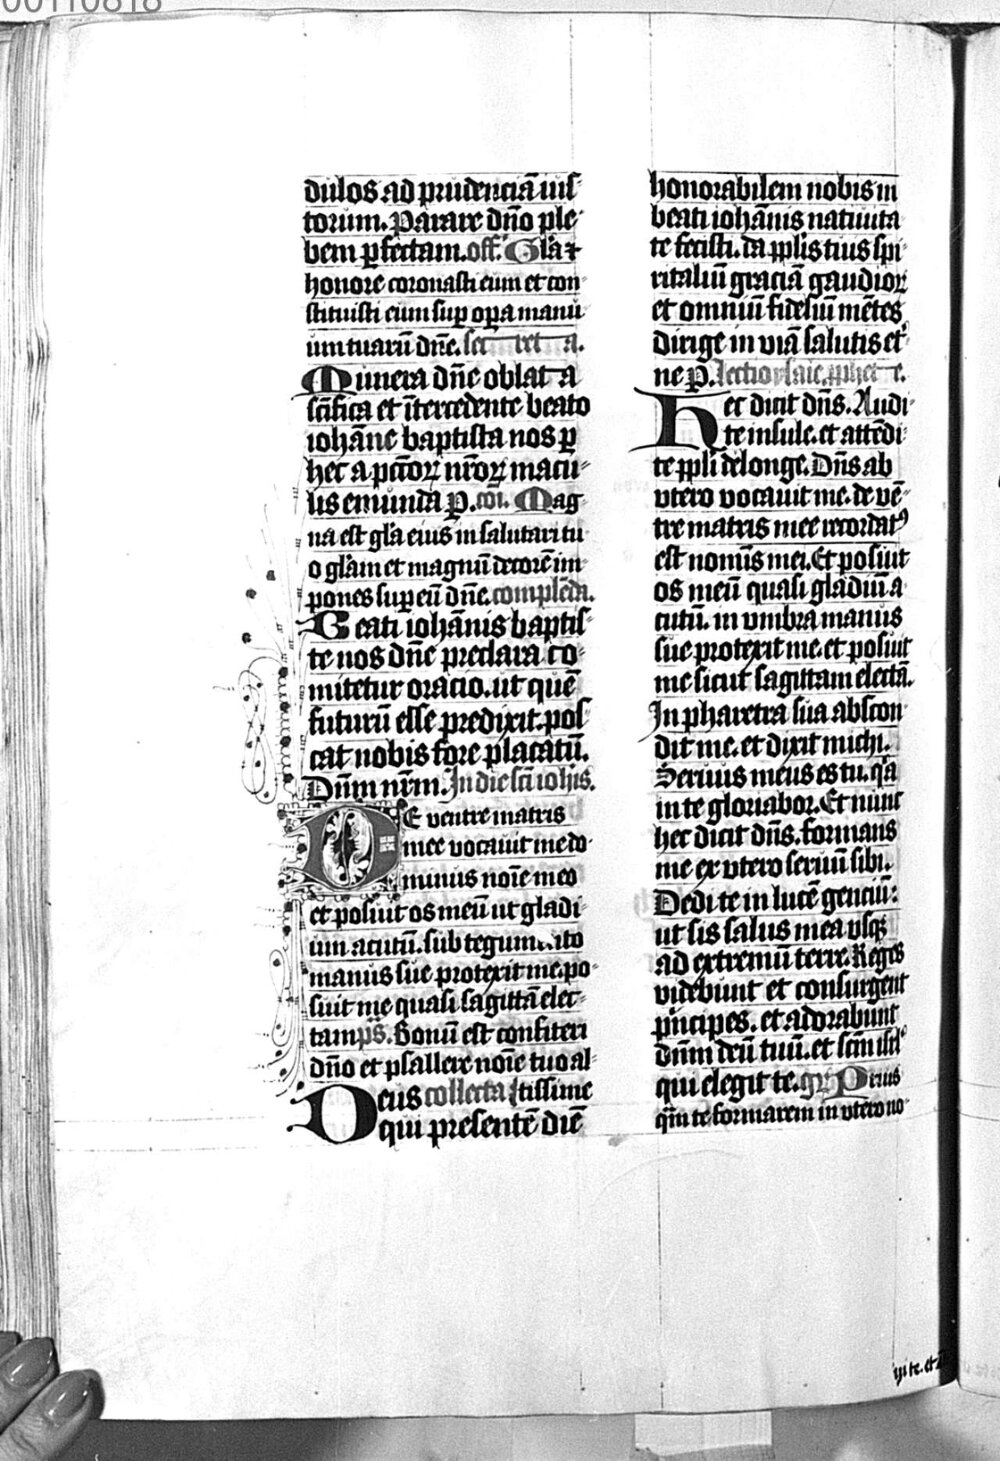 00110818
dulos ad prudenciā ius-
torum. Parare dn̄o ple-
bem ꝑfectam. off. Gl̄a ⁊
honore coronasti eum et con-
stituisti eum suꝑ oꝑa manu
um tuarū dn̄e. secreta.
Munera dn̄e oblata
sc̄ifica et īt̄ercedente beato
iohāne baptista nos ꝑ
hec a pcc̄oꝝ nr̄oꝝ macu-
lis emunda ꝑ. com̄. Mag-
na est gl̄a eius in salutari tu-
o gl̄am et magnū decorē im-
pones suꝑ eū dn̄e. complēda.
Beati iohānis baptis-
te nos dn̄e preclara co-
mitetur oracio. ut quē
futurū esse predixit. pos-
cat nobis fore placatū.
Dn̄m nr̄m. In die sc̄i ioh̄is.
DE ventre matris
mee vocauit me do-
minus noīe meo
et posuit os meū ut gladi-
um acutū. sub tegumento
manus sue protexit me. po-
suit me quasi sagittā elec-
tam p̄s. Bonū est confiteri
dn̄o et psallere noīe tuo al-
Deus collecta tissime
qui presentē diē
honorabilem nobis in
beati iohānis natiuita-
te fecisti. da ppl̄is tuis spi-
ritaliū graciā gaudioꝝ
et omniū fideliū mētes
dirige in viā salutis et̾-
ne ꝑ. lectio ysaie. ꝓphete.
Hec dicit dn̄s. Audi-
te insule. et attēdi-
te ppl̄i de longe. Dn̄s ab
vtero vocauit me. de vē-
tre matris mee recordatꝰ
est nominis mei. Et posuit
os meū quasi gladiū a-
cutū. in vmbra manus
sue protexit me. et posuit
me sicut sagittam electā.
In pharetra sua abscon-
dit me. et dixit michi.
Seruus meus es tu. q̄a
in te gloriabor. Et nunc
hec dicit dn̄s. formans
me ex vtero seruū sibi.
Dedi te in lucē genciū:
ut sis salus mea vsqꝫ
ad extremū terre. Reges
videbunt et consurgent
pͥncipes. et adorabunt
dn̄m deū tuū. et sc̄m isrl̄
qui elegit te. gr̄. Prius
qm̄ te formarem in vtero no-